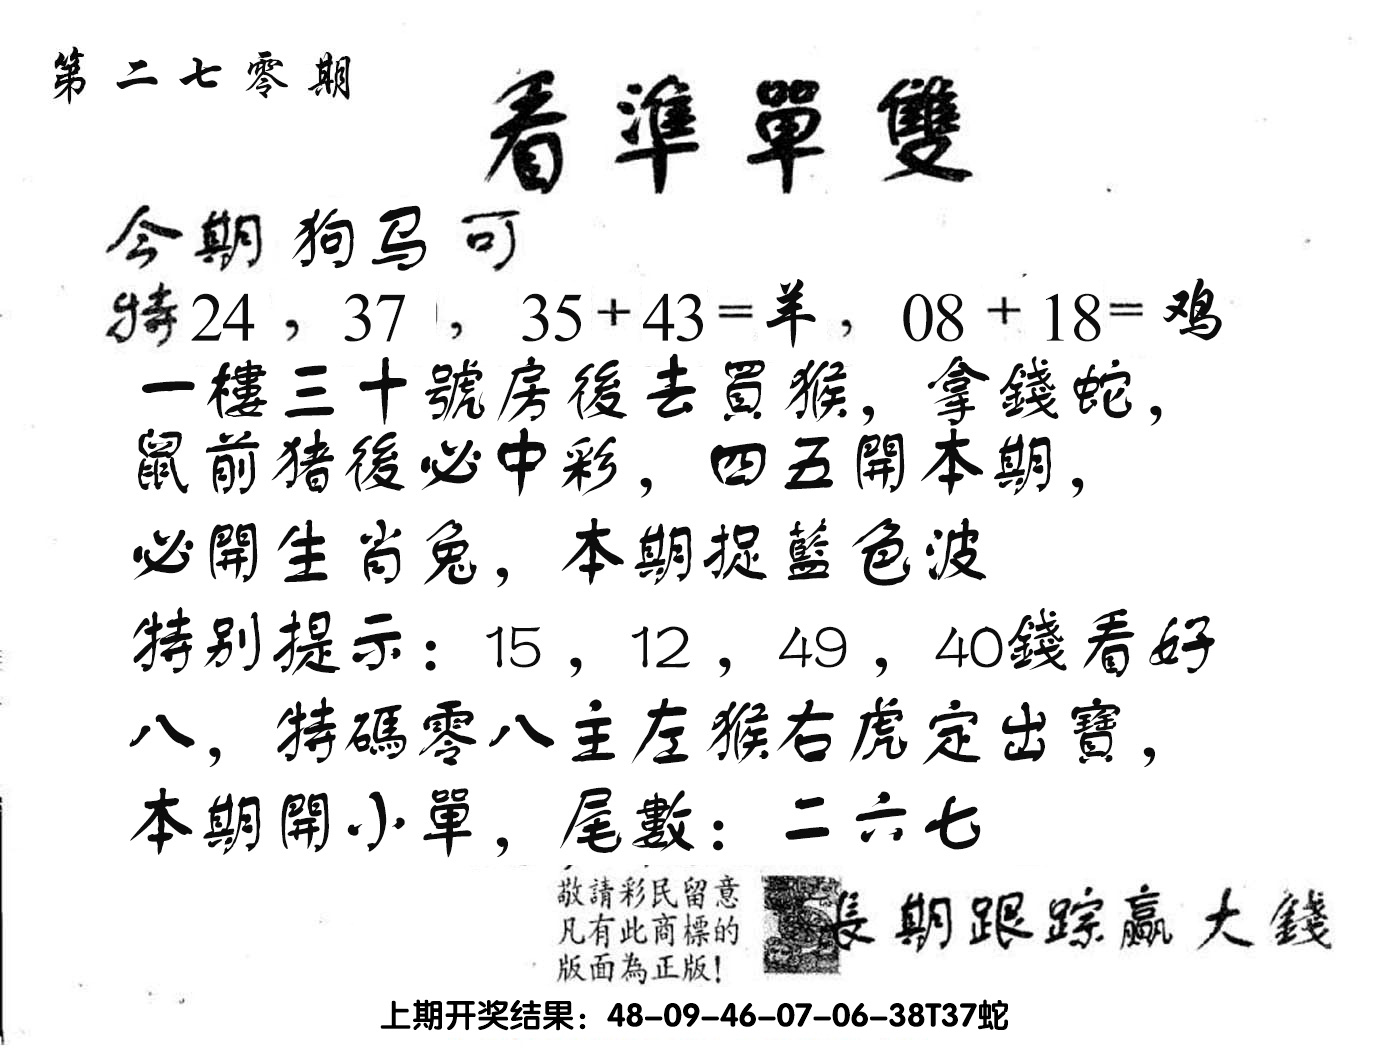 第二七零期
看準單雙
今期狗马可
特24，37，35+43=羊，08+18=鸡
一樓三十號房後去買猴，拿錢蛇，
鼠前猪後必中彩，四五開本期，
必開生肖兔，本期捉藍色波
特别提示：15，12，49，40錢看好
八，特碼零八主左猴右虎定出寶，
本期開小單，尾數：二六七
敬請彩民留意
凡有此商標的
版面為正版！
長期跟踪赢大錢
上期开奖结果：48-09-46-07-06-38T37蛇